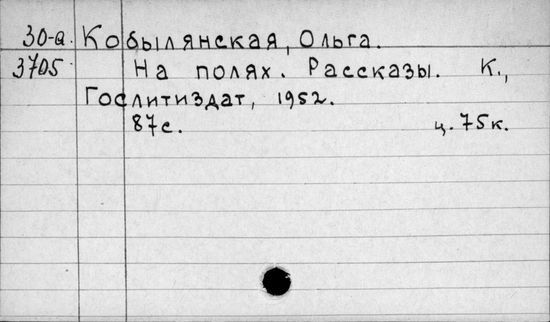 30-а. Кобылянская, Ольга.
3705 На полях. Рассказы. К.,
Гослитиздат, 1952.
87с. ц. 75к.